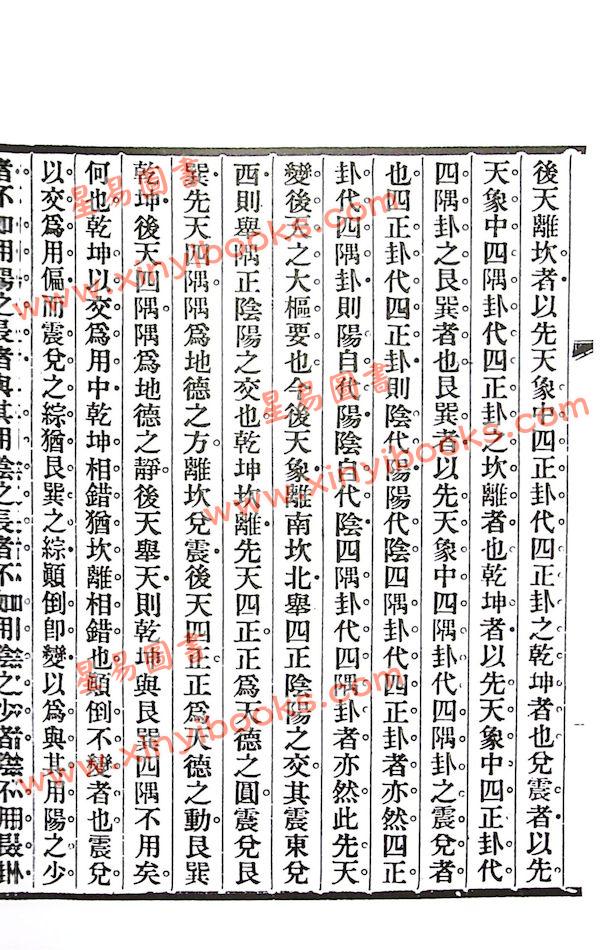 後天離坎者以先天象中四正卦代四正卦之乾坤者也兌震者以先
天象中四隅卦代四正卦之坎離者也乾坤者以先天象中四正卦代
四隅卦之艮巽者也艮巽者以先天象中四隅卦代四隅卦之震兌者
也四正卦代四正卦則陰代陽陽代陰四隅卦代四正卦者亦然四正
卦代四隅卦則陽自代陽陰自代陰四隅卦代四隅卦者亦然此先天
變後天之大樞要也今後天象離南坎北舉四正陰陽之交其震東兌
西則舉隅正陰陽之交也乾坤坎離先天四正正爲天德之圓震兌艮
巽先天四隅隅爲地德之方離坎兌震後天四正正爲天德之動艮巽
乾坤後天四隅隅爲地德之靜後天舉天則乾坤與艮巽四隅不用矣
何也乾坤以交爲用中乾坤相錯猶坎離相錯也顛倒不變者也震兌
以交爲用偏而震兌之綜猶艮巽之綜顛倒卽變以爲與其用陽之少
者不如用陽之長者與其用陰之長者不如用陰之少者陰不用
星易圖書
www.xinyibooks.com
星易圖書
www.xinyibooks.com
星易圖書
www.xinyibooks.com